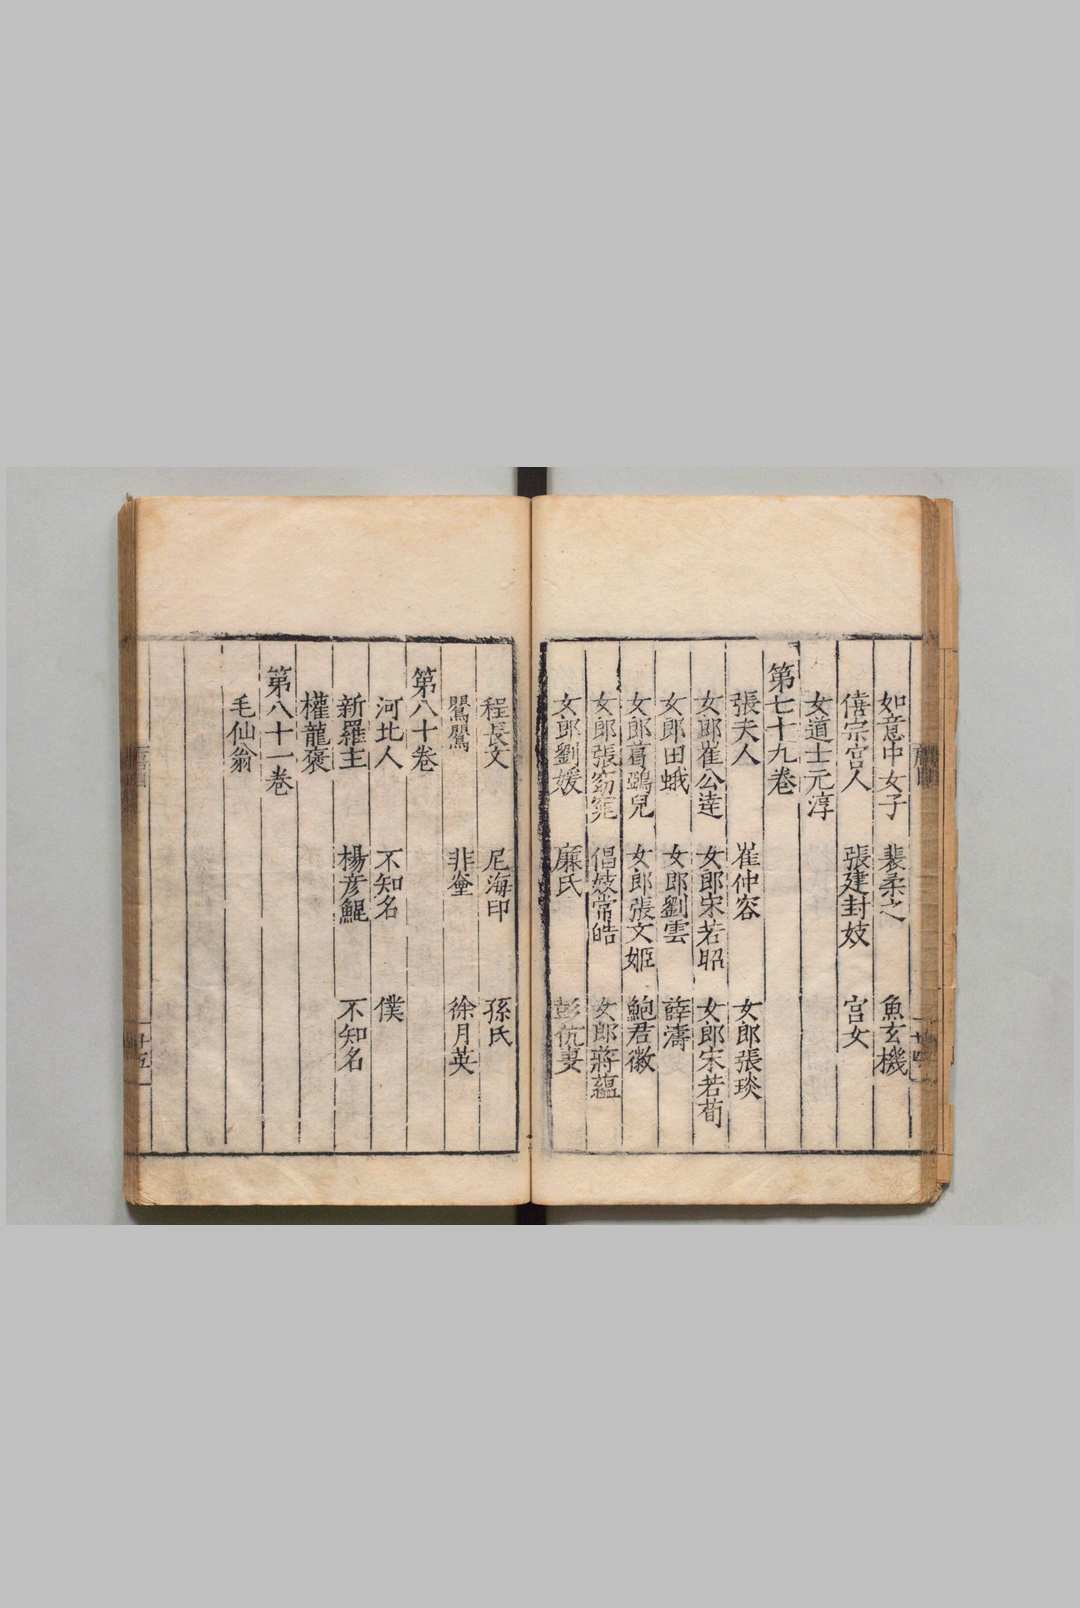 如意中女子 裴柔之 魚玄機
僖宗宮人 張建封妓 宮女
女道士元淳
第七十九卷
張夫人 崔仲容 女郎張琰
女郎崔公逵 女郎宋若昭 女郎宋若荀
女郎田娥 女郎劉雲 薛濤
女郎葛鵶兒 女郎張文姬 鮑君徽
女郎張窈窕 倡妓常皓 女郎蔣蘊
女郎劉媛 廉氏 彭伉妻
程長文 尼海印 孫氏
鸎鸎 非 徐月英
第八十卷
河北人 不知名 僕
新羅主 楊彦鯤 不知名
權龍褒
第八十一卷
毛仙翁